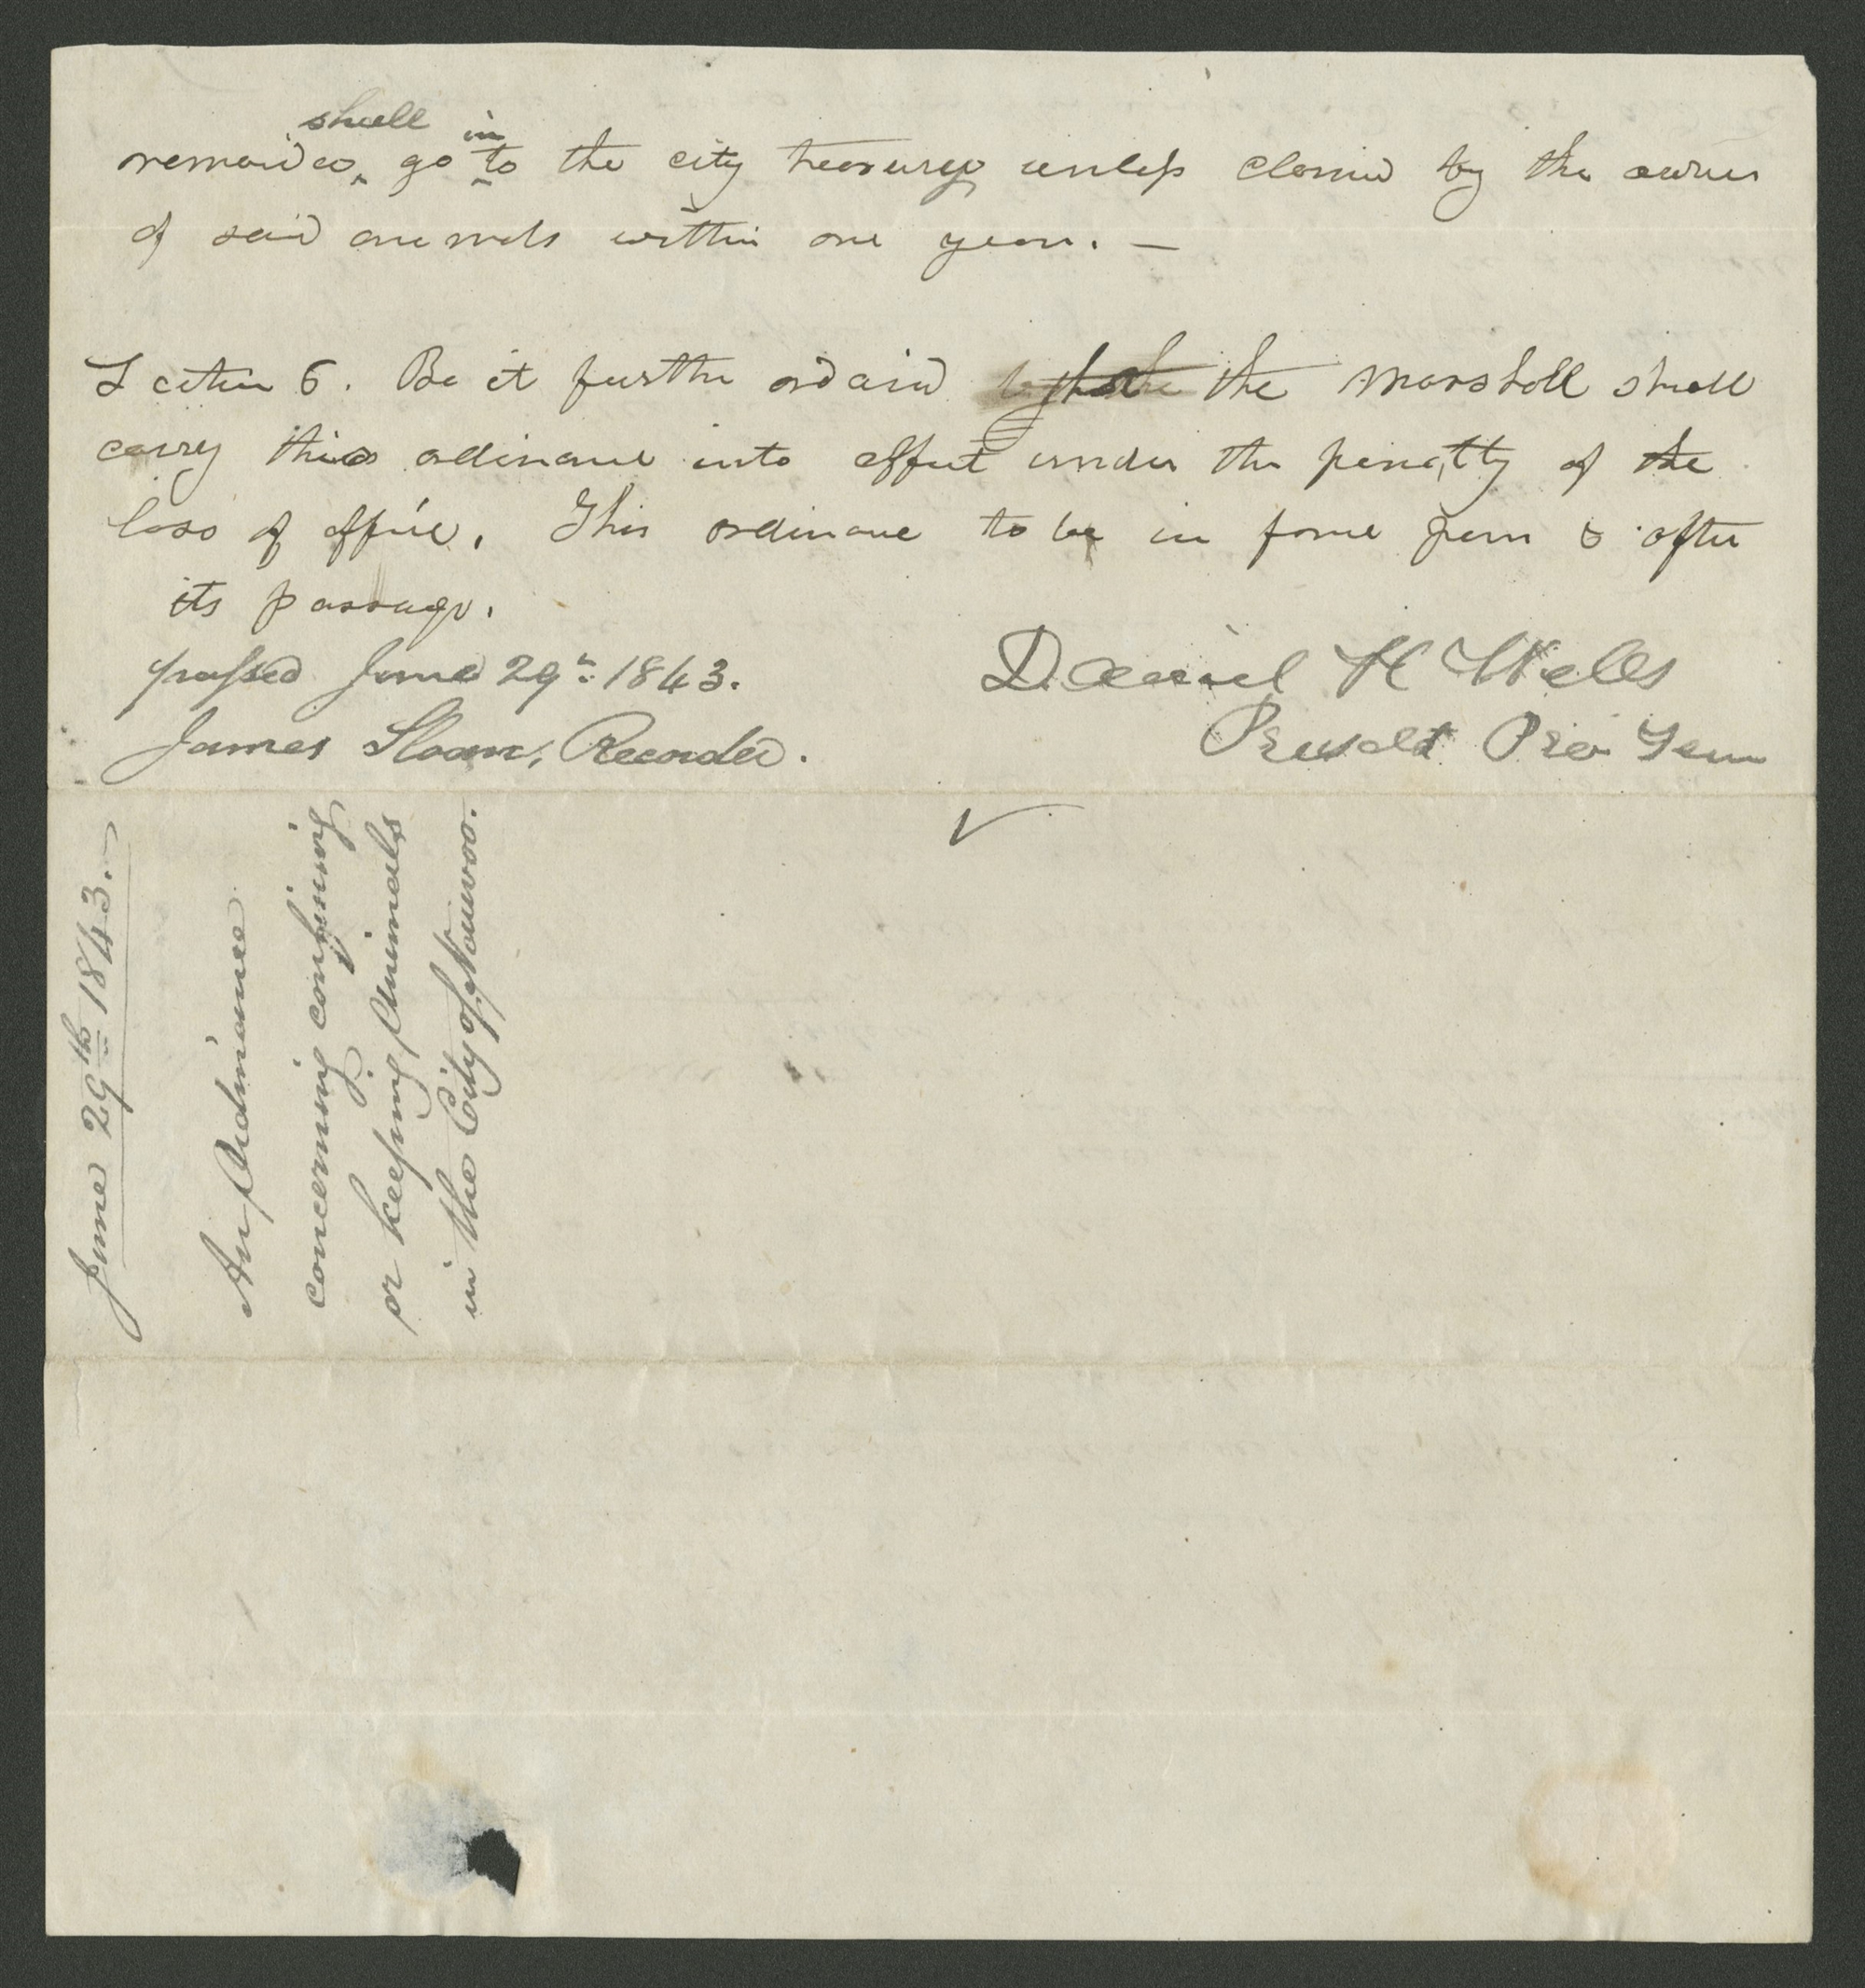 shall in
remainder go to the city treasury unless claimed by the owner
of said animals within one year. —
Section 6. Be it further ordaind that the Marshall shall
carry this ordinance into effect under the penalty of the
loss of office. This ordinance to be in force from & after
its passage.
passed June 29th. 1843.
Daniel H Wells
James Sloan, Recorder.
Presidt Pro Tem
June 29th 1843.
An Ordinance
concerning confining
or keeping Animals
in the City of Nauvoo.